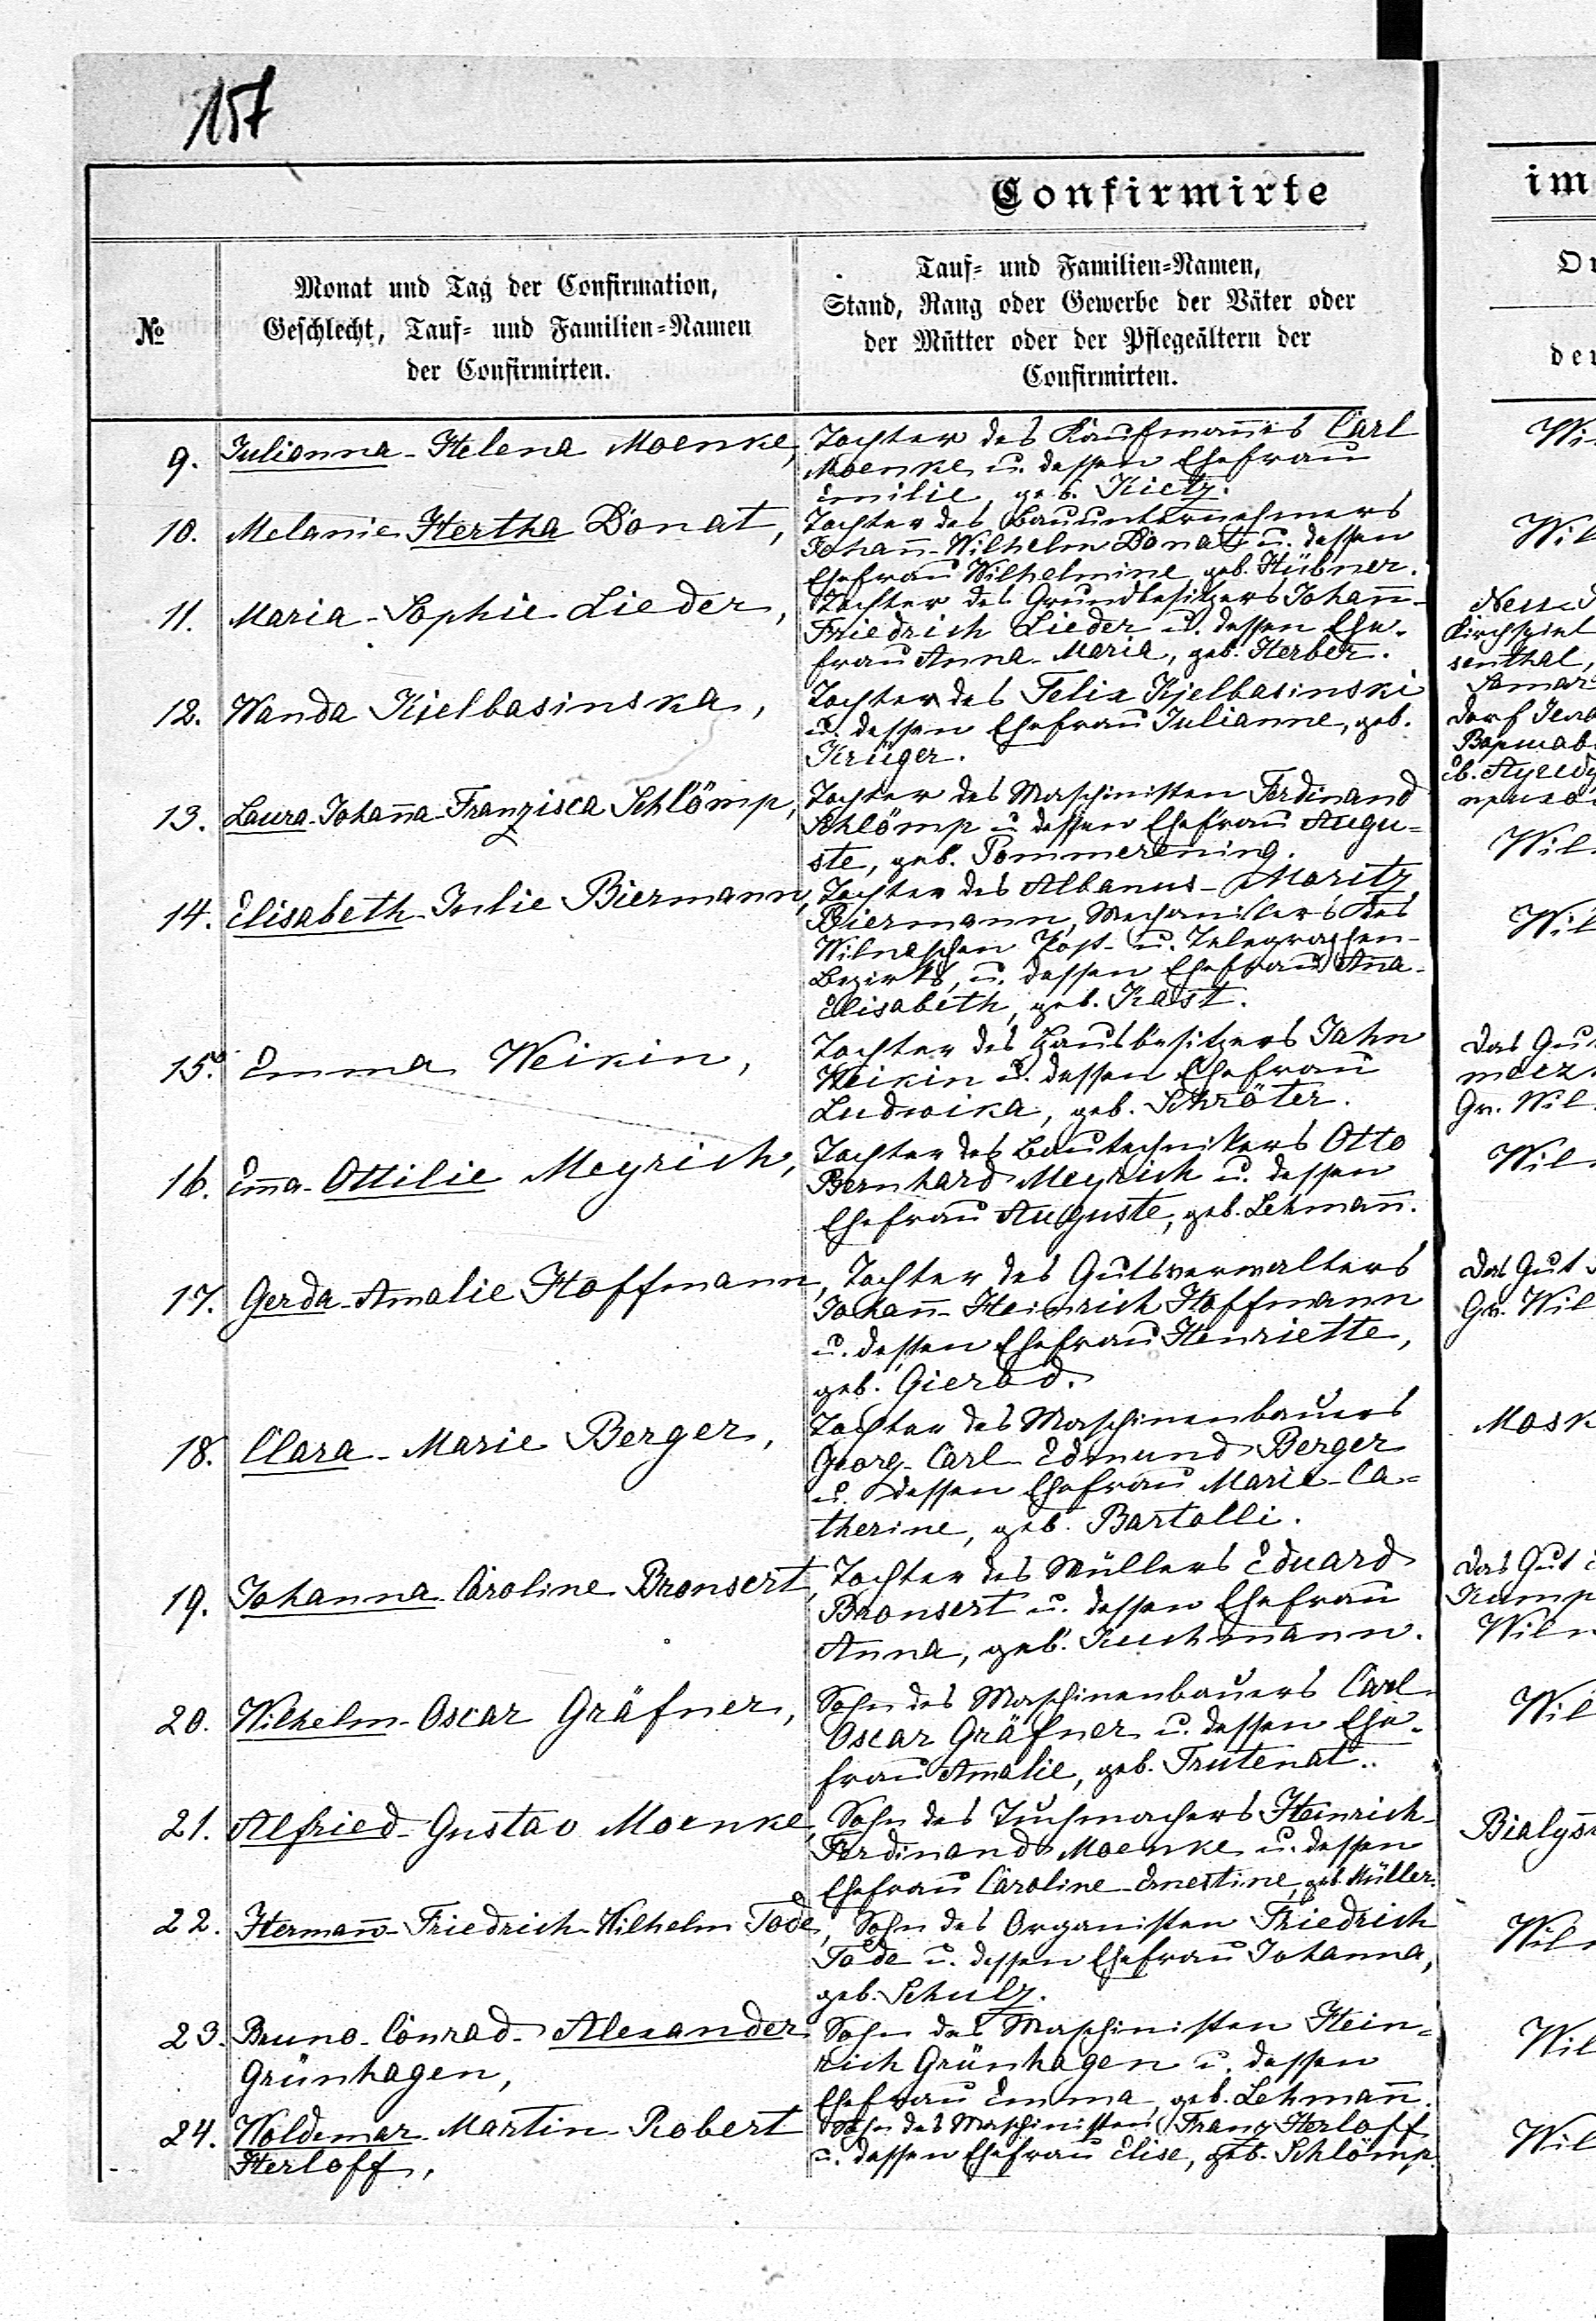 157
Confirmirte
im
№
Monat und Tag der Confirmation,
Geschlecht, Tauf- und Familien-Namen
der Confirmirten.
Tauf- und Familien-Namen,
Stand, Rang oder Gewerbe der Väter oder
der Mütter oder der Pflegeältern der
Confirmirten.
9. Julianna-Helena Moenke,
Tochter des Kaufmanns Carl
Moenke u. dessen Ehefrau
Emilie, geb. Kietz.
10. Melanie Hertha Donat,
Tochter des Bauunternehmers
Johann̄-Wilhelm Donat u. dessen
Ehefrau Wilhelmine geb. Hübner.
Wil
11. Maria-Sophie Lieder,
Tochter des Grundbesitzers Johann̄-
Friedrich Lieder u. dessen Ehe-
frau Anna-Maria, geb. Herber.
Kirchspiel
senthal,
12. Wanda Kjelbasinska,
Tochter des Felix Kjelbasinski
u. dessen Ehefrau Julianne, geb.
Krüger.
Dorf
13. Laura-Johan̄a-Franzisca Schlömp,
Tochter des Maschinisten Ferdinand
Schlömp u. dessen Ehefrau Augu-
ste, geb. Pommerening.
Wil
14. Elisabeth-Julie Biermann,
Tochter des Albanus-Moritz
Biermann, Mechanikers des
Wilnaschen Post- u. Telegraphen-
Bezirks, u. dessen Ehefrau An̄a-
Elisabeth, geb. Kast.
Wil
15. Emma Weikin,
Tochter des Hausbesitzers Jahn
Weikin u. dessen Ehefrau
Ludwika, geb. Schröter.
Das Gu
Gv. Wil
16. Em̄a-Ottilie Meyrich,
Tochter des Bautechnikers Otto
Bernhard Meyrich u. dessen
Ehefrau Auguste, geb. Lehman̄.
Wil
17. Gerda-Amalie Hoffmann,
Tochter des Gutsverwalters
Johan̄-Heinrich Hoffmann
u. dessen Ehefrau Henriette,
geb. Gierod.
Das Gut
Gv. Wil
18. Clara-Marie Berger,
Tochter des Maschinenbauers
Georg-Carl-Edmund Berger
u. dessen Ehefrau Marie-Ca-
therine, geb. Bartolli.
Mosk
19. Johanna Caroline Bronsert,
Tochter des Müllers Eduard
Bronsert u. dessen Ehefrau
Anna, geb. Kuchmann.
Das Gut
Wil
20. Wilhelm-Oscar Gräfner,
Sohn des Maschinenbauers Carl-
Oscar Gräfner u. dessen Ehe-
frau Amalie, geb. Trutenat.
Wil
21. Alfried-Gustav Moenke,
Sohn des Tuchmachers Heinrich-
Ferdinand Moenke u. dessen
Ehefrau Caroline-Ernestine, geb. Müller.
22. Herman̄-Friedrich-Wilhelm Tode,
Sohn des Organisten Friedrich
Tode u. dessen Ehefrau Johanna,
geb. Schulz.
Wil
23. Bruno-Conrad-Alexander
Grünhagen,
Sohn des Maschinisten Hein-
rich Grünhagen u. dessen
Ehefrau Emma, geb. Lehman̄.
Wil
24. Woldemar-Martin-Robert
Herloff,
Sohn des Maschinisten Franz Herloff
u. dessen Ehefrau Elise, geb. Schlömp.
Wil